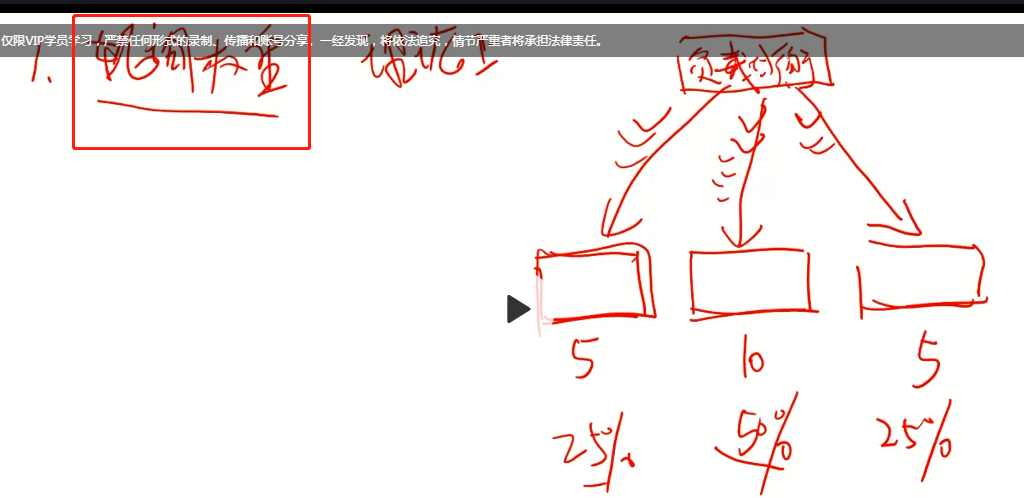 仅限VIP学员学习，严禁任何形式的录制、传播和账号分享。一经发现，将依法追究，情节严重者将承担法律责任。
1、轮询权重 理论上
负载均衡
5 10 5
25% 50% 25%